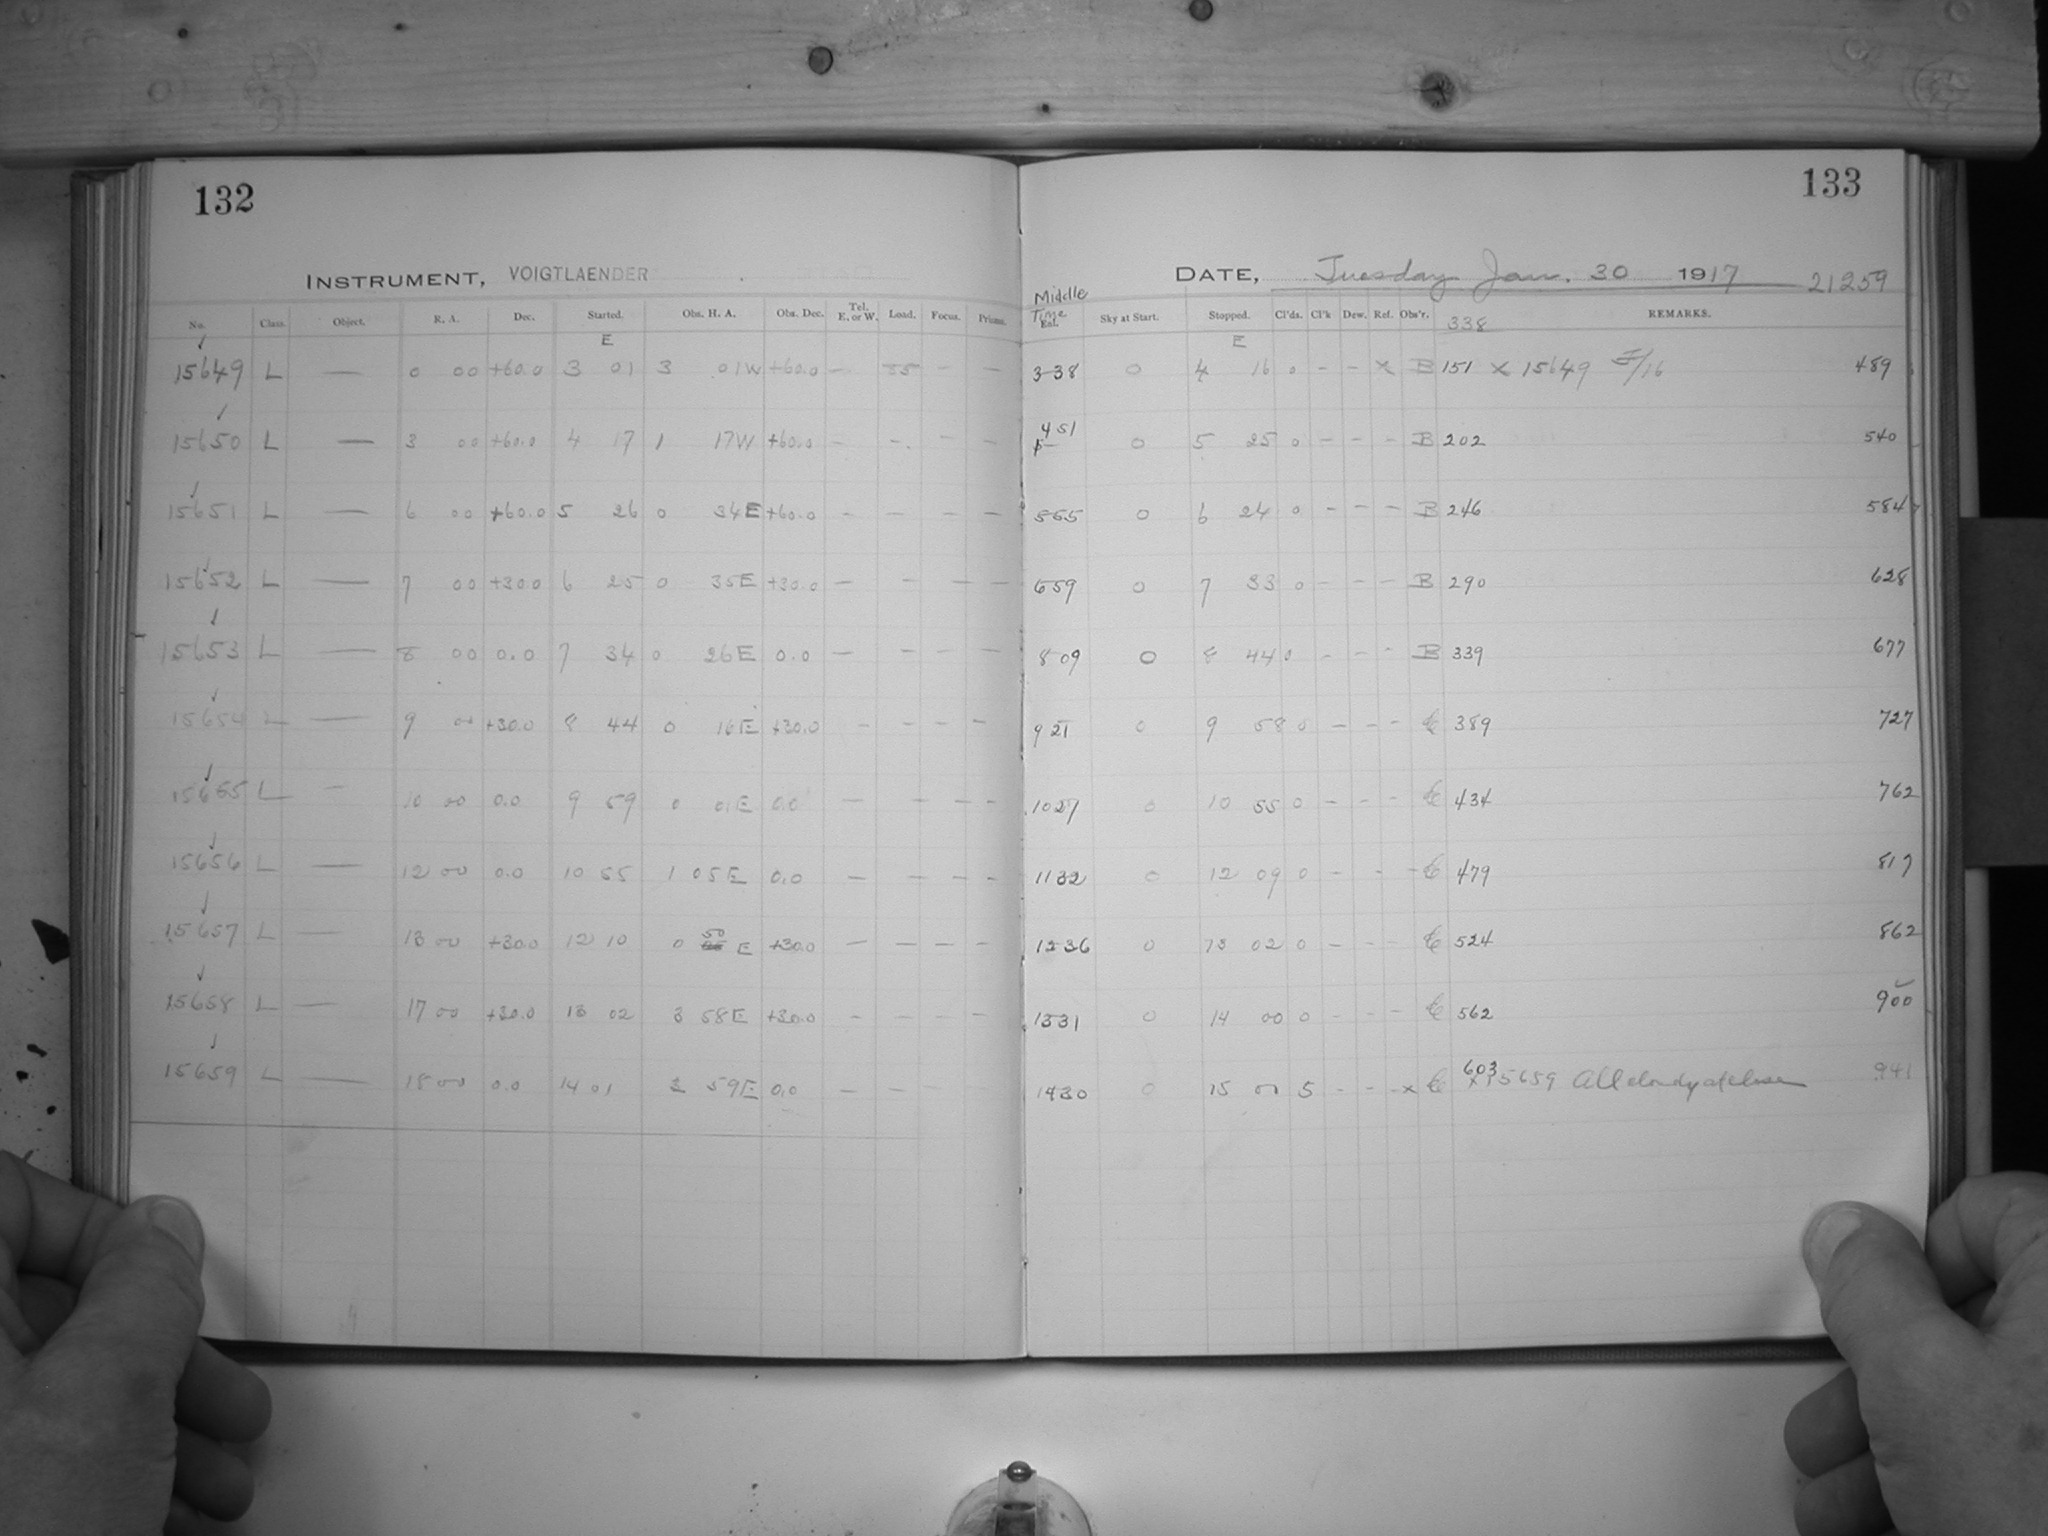 132
INSTRUMENT, VOIGTLAENDER
No. Class. Object. R. A. Dec. Started. Obs. H. A. Obs. Dec. Tel. E. or W. Load. Focus. Prisms.
E
15649 L — 0 00 +60.0 3 01 3 01W +60.0 — 55 — —
15650 L — 3 00 +60.0 4 17 1 17W +60.0 — — — —
15651 L — 6 00 +60.0 5 26 0 34E +60.0 — — — —
15652 L — 7 00 +30.0 6 25 0 35E +30.0 — — — —
15653 L — 8 00 0.0 7 34 0 26E 0.0 — — — —
15654 L — 9 00 +30.0 8 44 0 16E +30.0 — — — —
15655 L — 10 00 0.0 9 59 0 01E 0.0 — — — —
15656 L — 12 00 0.0 10 55 1 05E 0.0 — — — —
15657 L — 13 00 +30.0 12 10 0 50 E +30.0 — — — —
15658 L — 17 00 +30.0 13 02 3 58E +30.0 — — — —
15659 L — 18 00 0.0 14 01 3 59E 0.0 — — — —
133
DATE, Tuesday Jan. 30 1917 21259
Middle Time
Ent. Sky at Start. Stopped. Cl'ds. Cl'k Dew. Ref. Obs'r. REMARKS.
338
E
3 38 0 4 16 0 — — x B 151 x 15649 E/16 489
4 51 0 5 25 0 — — — B 202 540
5 55 0 6 24 0 — — — B 246 584
6 59 0 7 33 0 — — — B 290 628
8 09 0 8 44 0 — — — B 339 677
9 21 0 9 58 0 — — — 389 727
10 27 0 10 55 0 — — — 434 762
11 32 0 12 09 0 — — — 479 817
12 36 0 13 02 0 — — — 524 862
13 31 0 14 00 0 — — — 562 900
14 30 0 15 00 5 — — — x 603 x 15659 All cloudy at close 941